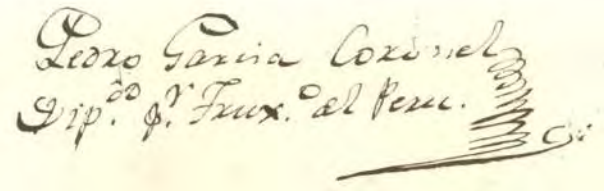 Pedro Garcia Coronel
Dip.do p.r Trux.o al Peru.